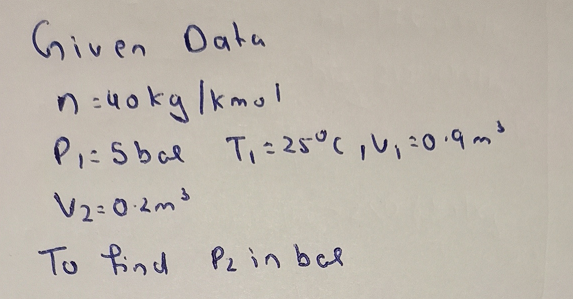 Given Data
n = 40kg/kmol
P₁ = 5bar T₁ = 25°C, V₁ = 0.9m³
V₂ = 0.2m³
To find P₂ in bar